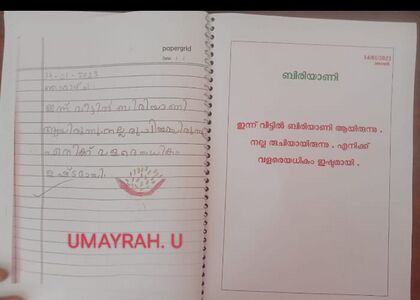 papergrid
Date: / /
ഇന്ന് വീട്ടിൽ ബിരിയാണി
ആയിരുന്നു. നല്ല രുചിയായിരുന്നു
എനിക്ക് വളരെയധികം
ഇഷ്ടമായി.
UMAYRAH. U
ബിരിയാണി
ഇന്ന് വീട്ടിൽ ബിരിയാണി ആയിരുന്നു .
നല്ല രുചിയായിരുന്നു . എനിക്ക്
വളരെയധികം ഇഷ്ടമായി .